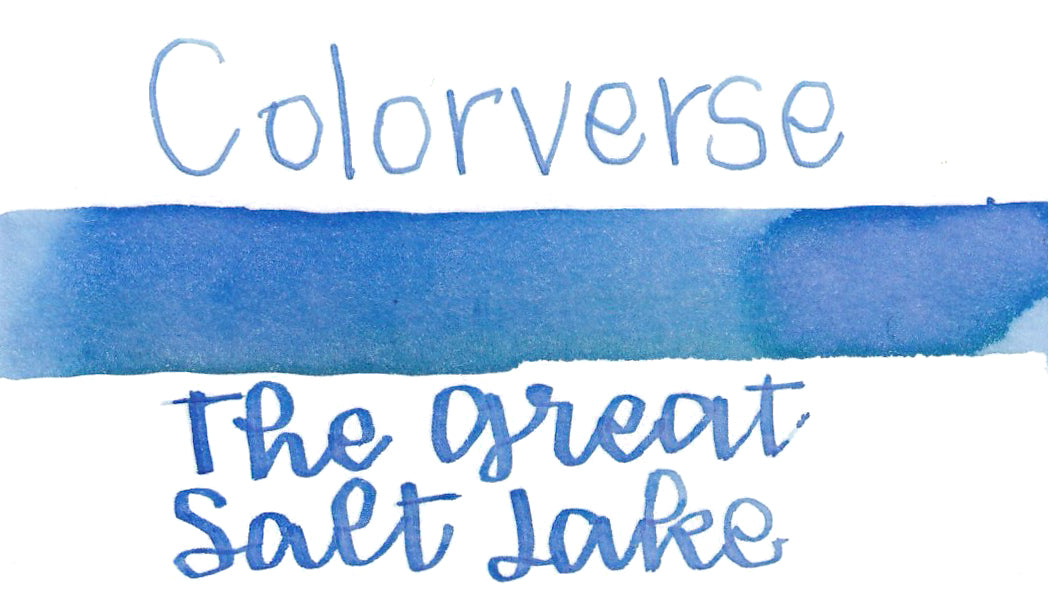 Colorverse
The Great
Salt Lake